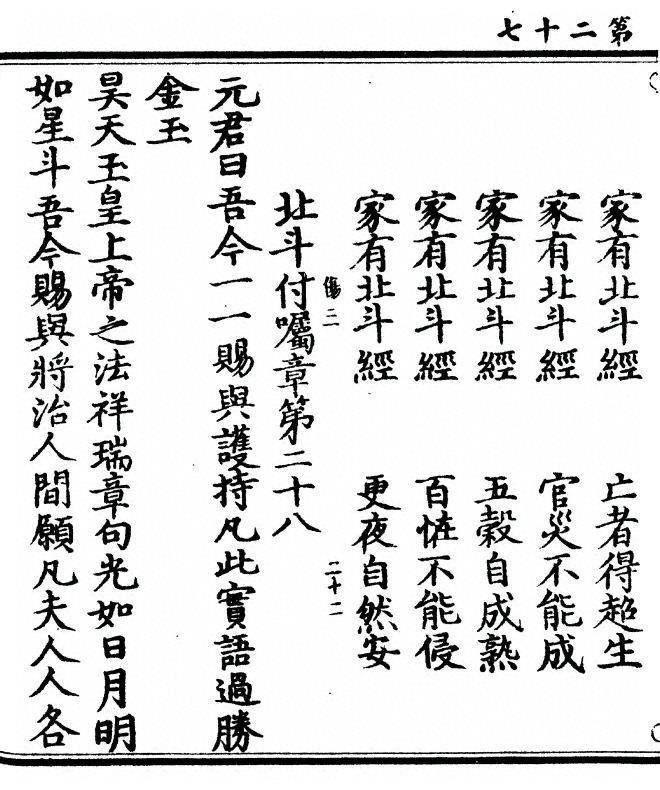 第二十七
家有北斗經　亡者得超生
家有北斗經　官災不能成
家有北斗經　五穀自成熟
家有北斗經　百恠不能侵
家有北斗經　更夜自然安
傷二　二十二
北斗付囑章第二十八
元君曰吾今一一賜與護持凡此實語過勝
金玉
昊天玉皇上帝之法祥瑞章句光如日月明
如星斗吾今賜與將治人間願凡夫人人各